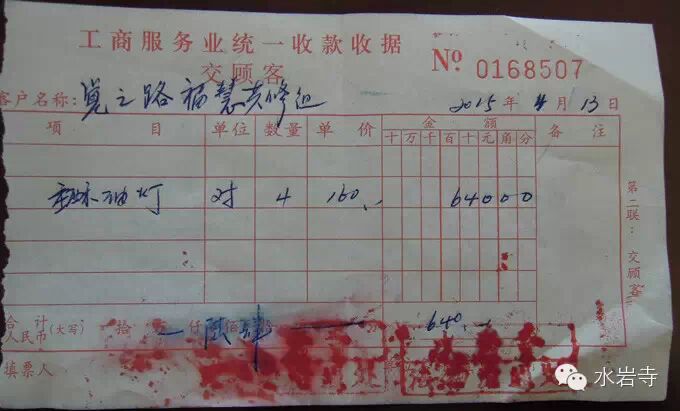 工商服务业统一收款收据
交顾客
№ 0168507
客户名称: 觉之路福慧共修组
2015年4月13日
项 目 单位 数量 单 价 金 额 备 注
十 万 千 百 十 元 角 分
油灯 对 4 160.- 64000
第二联:交顾客
合 计
人民币
(大写) 拾 仟 陆 佰 肆 分 640.-
填票人
水岩寺